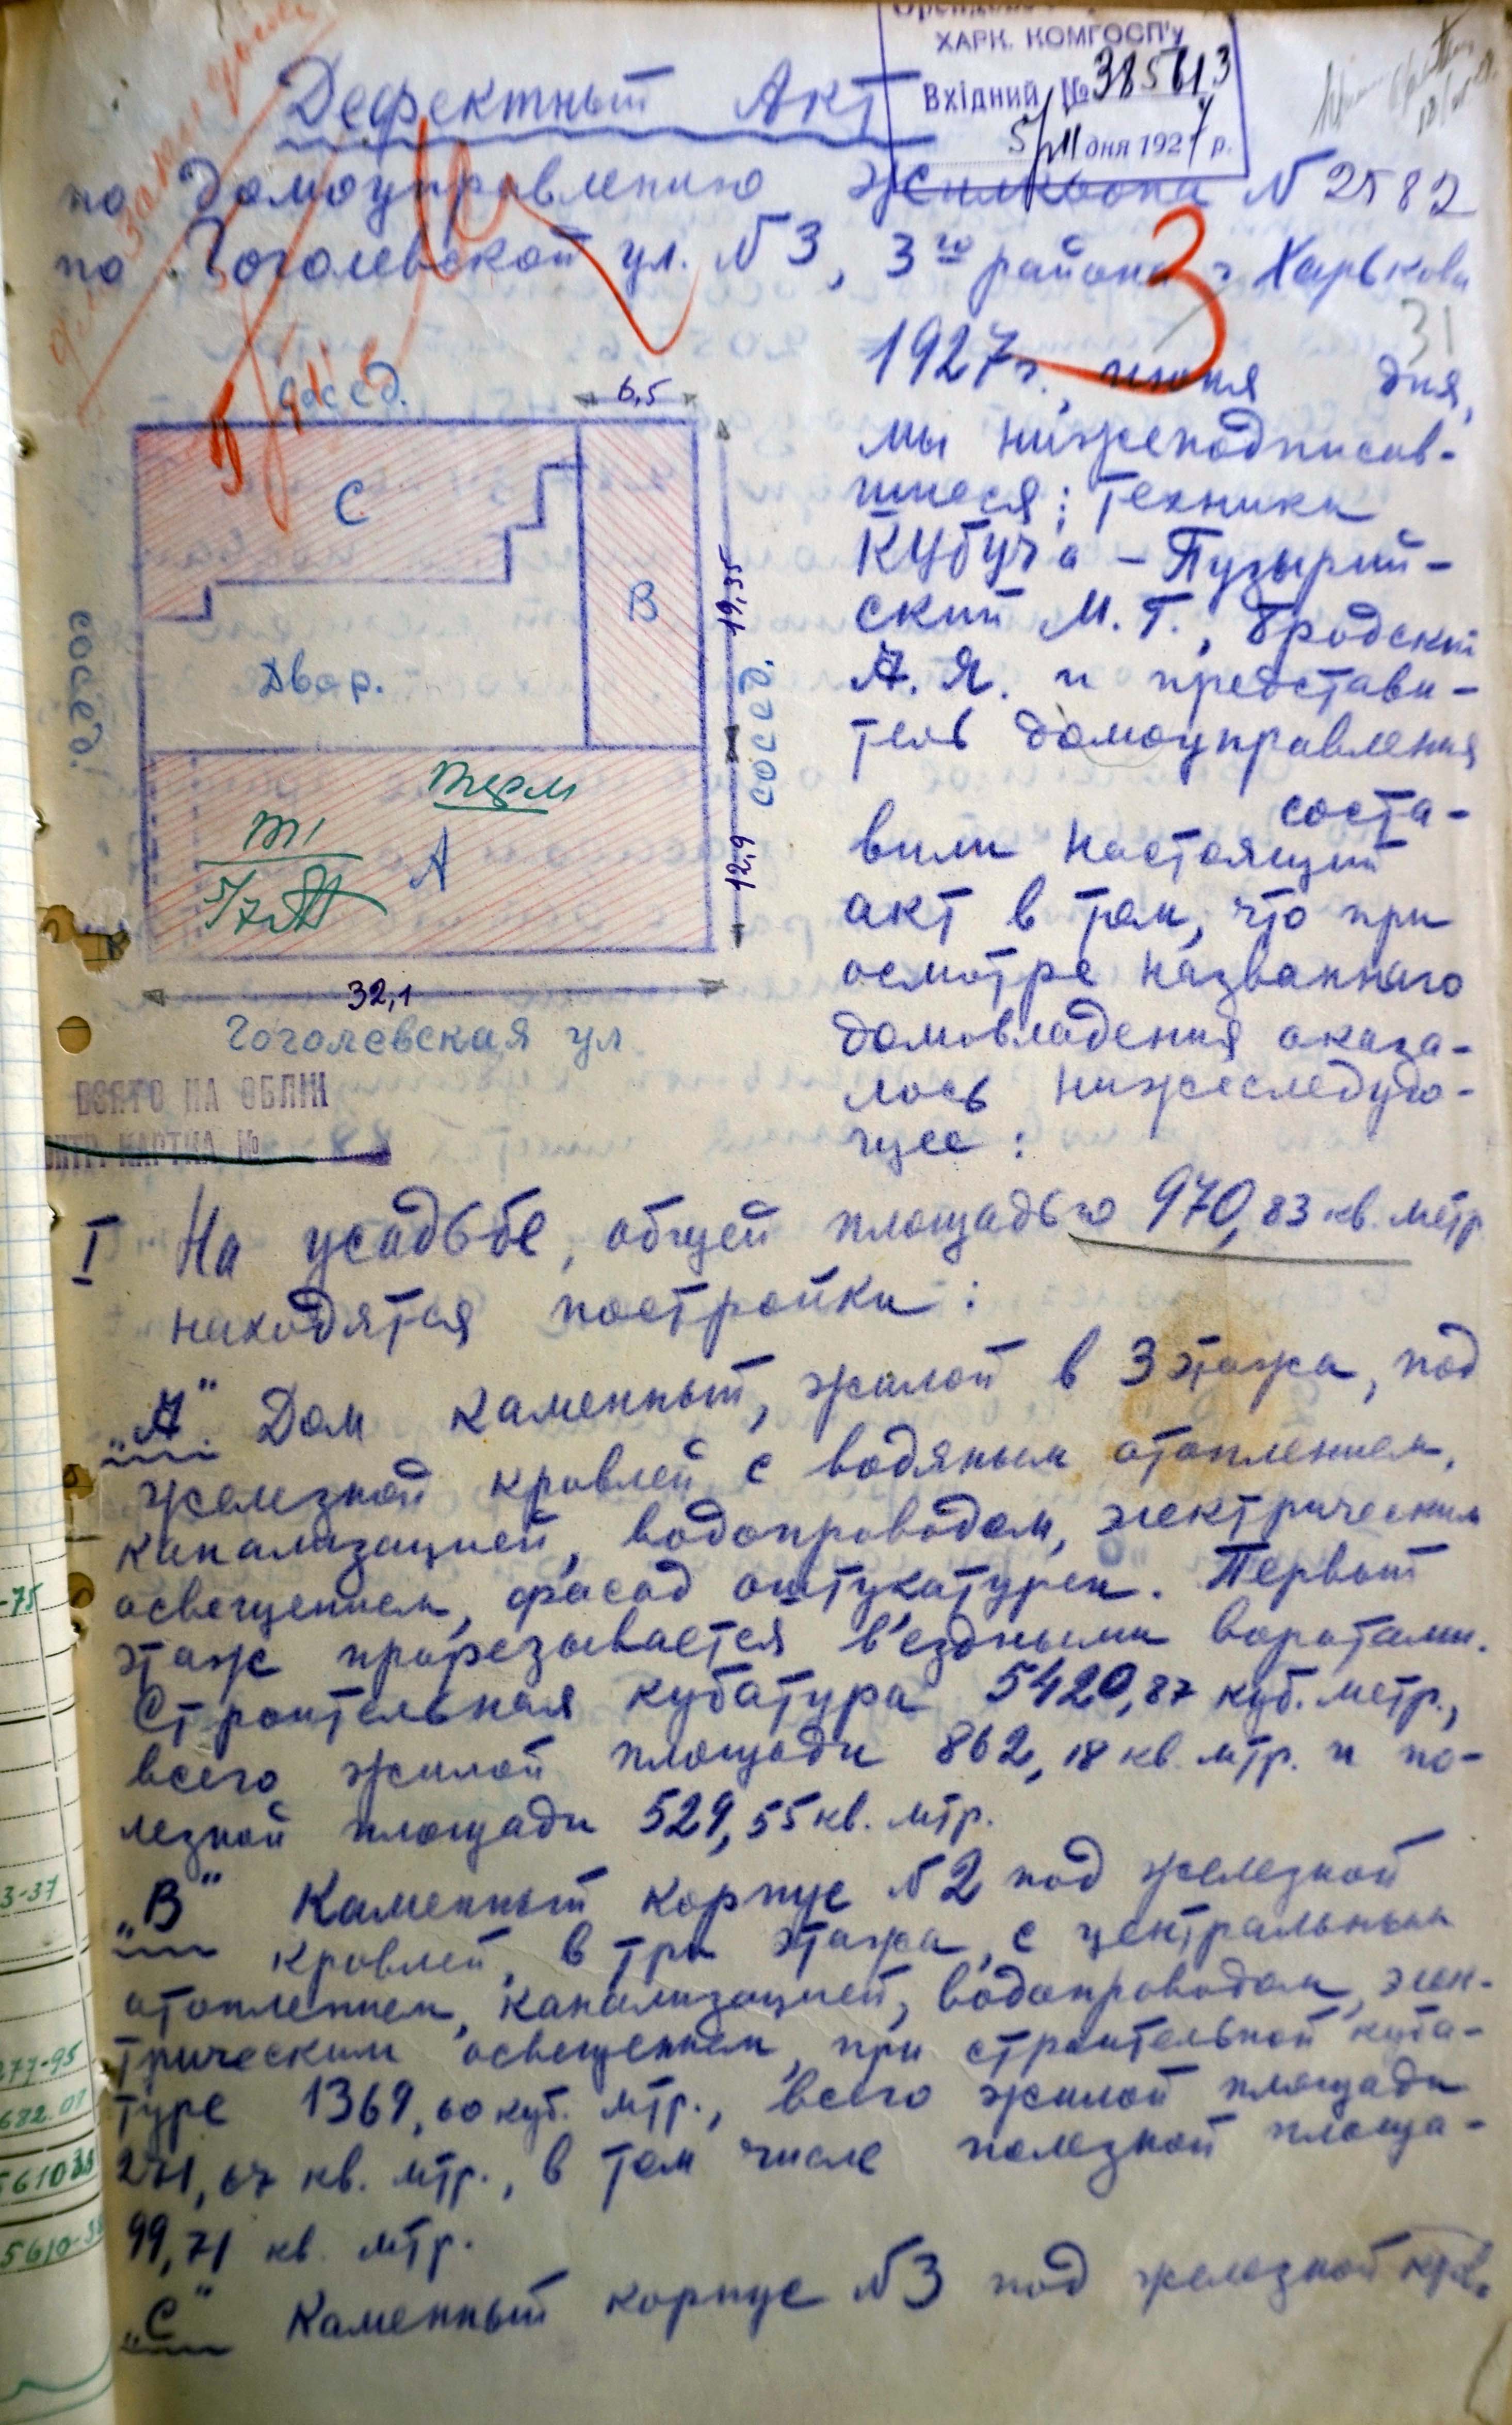 ХАРК. КОМГОСП'У
Вхідний № 385613
5/VII дня 1927 р.
Дефектный Акт
по домоуправлению Жилкоопа N 2582
по Гоголевской ул. N 3, 3го района г. Харькова
3
31
1927г., июня дня,
мы нижеподписав-
шиеся; техники
КУбуча - Пузырий-
ский М. Г., Бродский
А. Я. и представи-
тель домоуправления
соста-
вили настоящий
акт в том, что при
осмотре названнаго
домовладения оказа-
лось нижеследую-
щее:
сосед.
6,5
С
В
19,35
сосед.
Двор.
сосед.
А
12,9
32,1
Гоголевская ул
ВЗЯТО НА ОБЛІК
КАРТКА №
I На усадьбе, общей площадью 970,83 кв. метр
находятся постройки:
„А" Дом каменный, жилой в 3 этажа, под
железной кровлей с водяным отоплением,
канализацией, водопроводом, электрическим
освещением, фасад оштукатурен. Первый
этаж прорезывается в'ездными воротами.
Строительная кубатура 5420,87 куб. метр.,
всего жилой площади 862,18 кв. мтр. и по-
лезной площади 529,55 кв. мтр.
„В" Каменный корпус N 2 под железной
кровлей, в три этажа, с центральным
отоплением, канализацией, водопроводом, элек-
трическим освещением, при строительной куба-
туре 1369,60 куб. мтр., всего жилой площади
271,67 кв. мтр., в том числе полезной площа-
99,71 кв. мтр.
„С" Каменный корпус N 3 под железной кров.
-75
3-37
277-95
682.07
561038